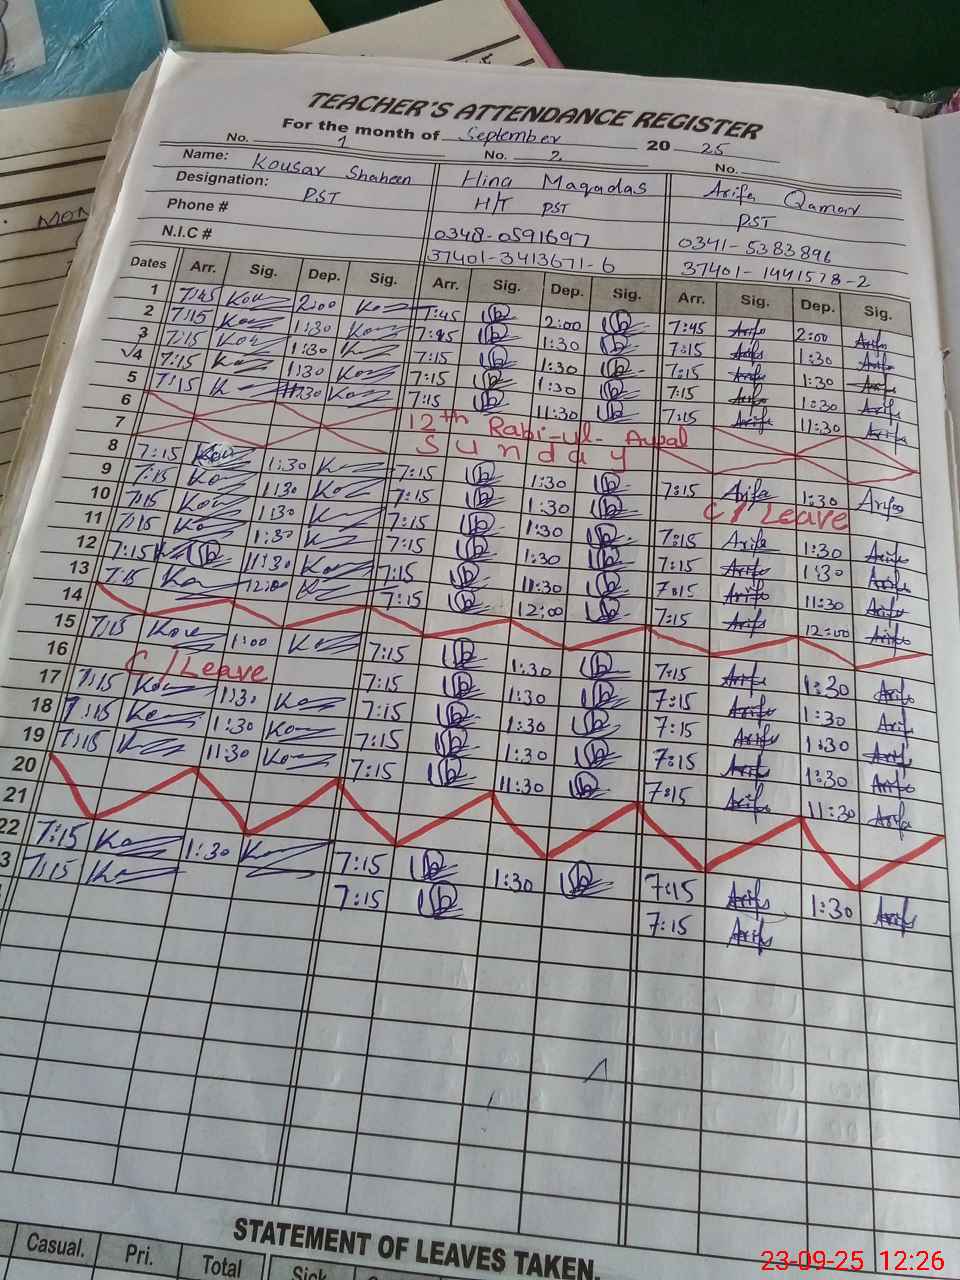 MON
TEACHER'S ATTENDANCE REGISTER
For the month of September 2025
No. 1 No. 2 No.
Name: Kousar Shaheen Hina Maqadas Arifa Qamar
Designation: PST H/T PST PST
Phone # 0348-0591697 0341-5383896
N.I.C # 37401-3413671-6 37401-1441578-2
Dates Arr. Sig. Dep. Sig. Arr. Sig. Dep. Sig. Arr. Sig. Dep. Sig.
1 7:45 Kou 2:00 Kou 7:45 2:00 7:45 Arifa 2:00 Arifa
2 7:15 Kou 1:30 Kou 7:45 1:30 7:15 Arifa 1:30 Arifa
3 7:15 Kou 1:30 7:15 1:30 7:15 Arifa 1:30 Arifa
√4 7:15 Kou 1:30 Kou 7:15 1:30 7:15 Arifa 1:30 Arifa
5 7:15 11:30 Kou 7:15 11:30 7:15 Arifa 11:30 Arifa
6 12th Rabi-ul-Awal
7 Sunday
8 7:15 Kou 1:30 7:15 1:30 7:15 Arifa 1:30 Arifa
9 7:15 Kou 1:30 Kou 7:15 1:30 C/Leave
10 7:15 Kou 1:30 7:15 1:30 7:15 Arifa 1:30 Arifa
11 7:15 Kou 1:30 7:15 1:30 7:15 Arifa 1:30 Arifa
12 7:15 11:30 Kou 7:15 11:30 7:15 Arifa 11:30 Arifa
13 7:15 Kou 12:00 7:15 12:00 7:15 Arifa 12:00 Arifa
14
15 7:15 Kou 1:00 Kou 7:15 1:30 7:15 Arifa 1:30 Arifa
16 C/Leave 7:15 1:30 7:15 Arifa 1:30 Arifa
17 7:15 Kou 1:30 Kou 7:15 1:30 7:15 Arifa 1:30 Arifa
18 7:15 Kou 1:30 Kou 7:15 1:30 7:15 Arifa 1:30 Arifa
19 7:15 11:30 Kou 7:15 11:30 7:15 Arifa 11:30 Arifa
20
21
22 7:15 Kou 1:30 Kou 7:15 1:30 7:15 Arifa 1:30 Arifa
3 7:15 Kou 7:15 7:15 Arifa
STATEMENT OF LEAVES TAKEN.
Casual. Pri. Total Sick
23-09-25 12:26